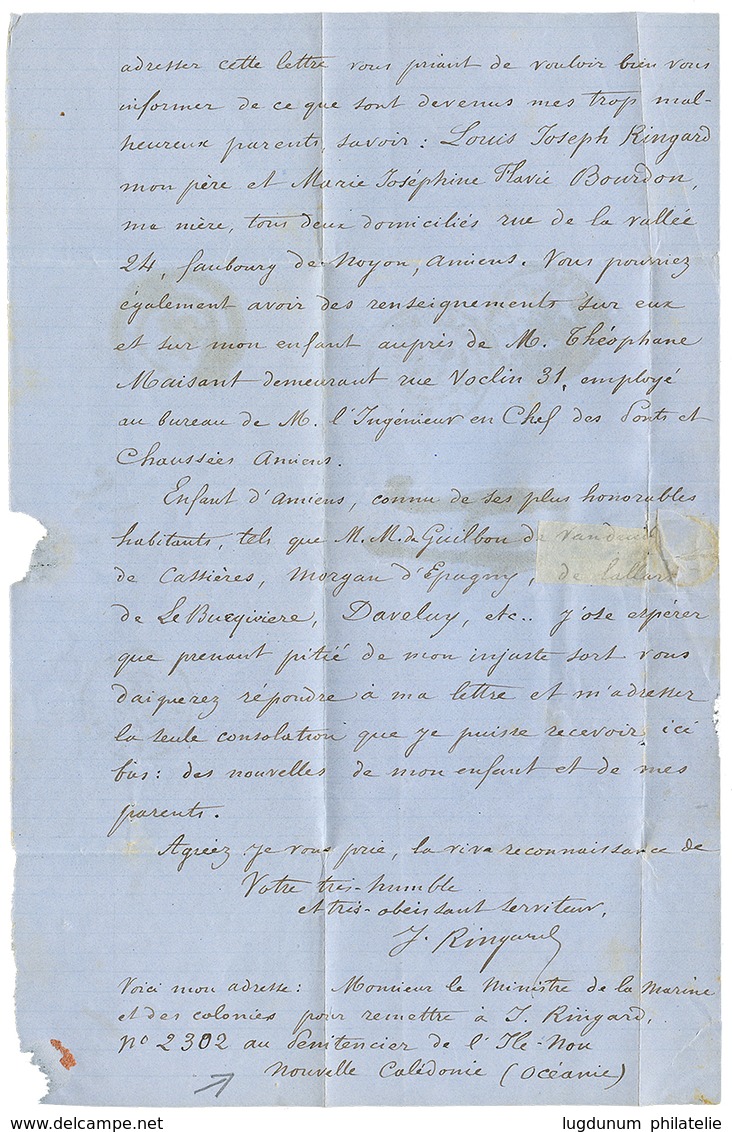 adresser cette lettre vous priant de vouloir bien vous
informer de ce que sont devenus mes trop mal-
heureux parents, savoir : Louis Joseph Ringard
mon père et Marie Joséphine Flavie Bourdon,
ma mère, tous deux domiciliés rue de la vallée
24, faubourg de Noyon, Amiens. Vous pourriez
également avoir des renseignements sur eux
et sur mon enfant auprès de M. Théophane
Maisant demeurant rue Voclin 31, employé
au bureau de M. l'Ingénieur en Chef des Ponts et
Chaussées Amiens.
Enfant d'Amiens, connu de ses plus honorables
habitants, tels que M.M. de Guilbon de Vandeuil
de Cassières, Morgan d'Epagny, de
de Le Bucqiviere, Daveluy, etc.. j'ose espérer
que prenant pitié de mon injuste sort vous
daignerez répondre à ma lettre et m'adresser
la seule consolation que je puisse recevoir ici
bas : des nouvelles de mon enfant et de mes
parents.
Agréez je vous prie, la vive reconnaissance de
Votre très-humble
et très-obéissant serviteur,
J. Ringard
Voici mon adresse : Monsieur le Ministre de la Marine
et des colonies pour remettre à J. Ringard,
No 2302 au Pénitencier de l'Ile-Nou
Nouvelle Calédonie (Océanie)
lugdunum philatelie